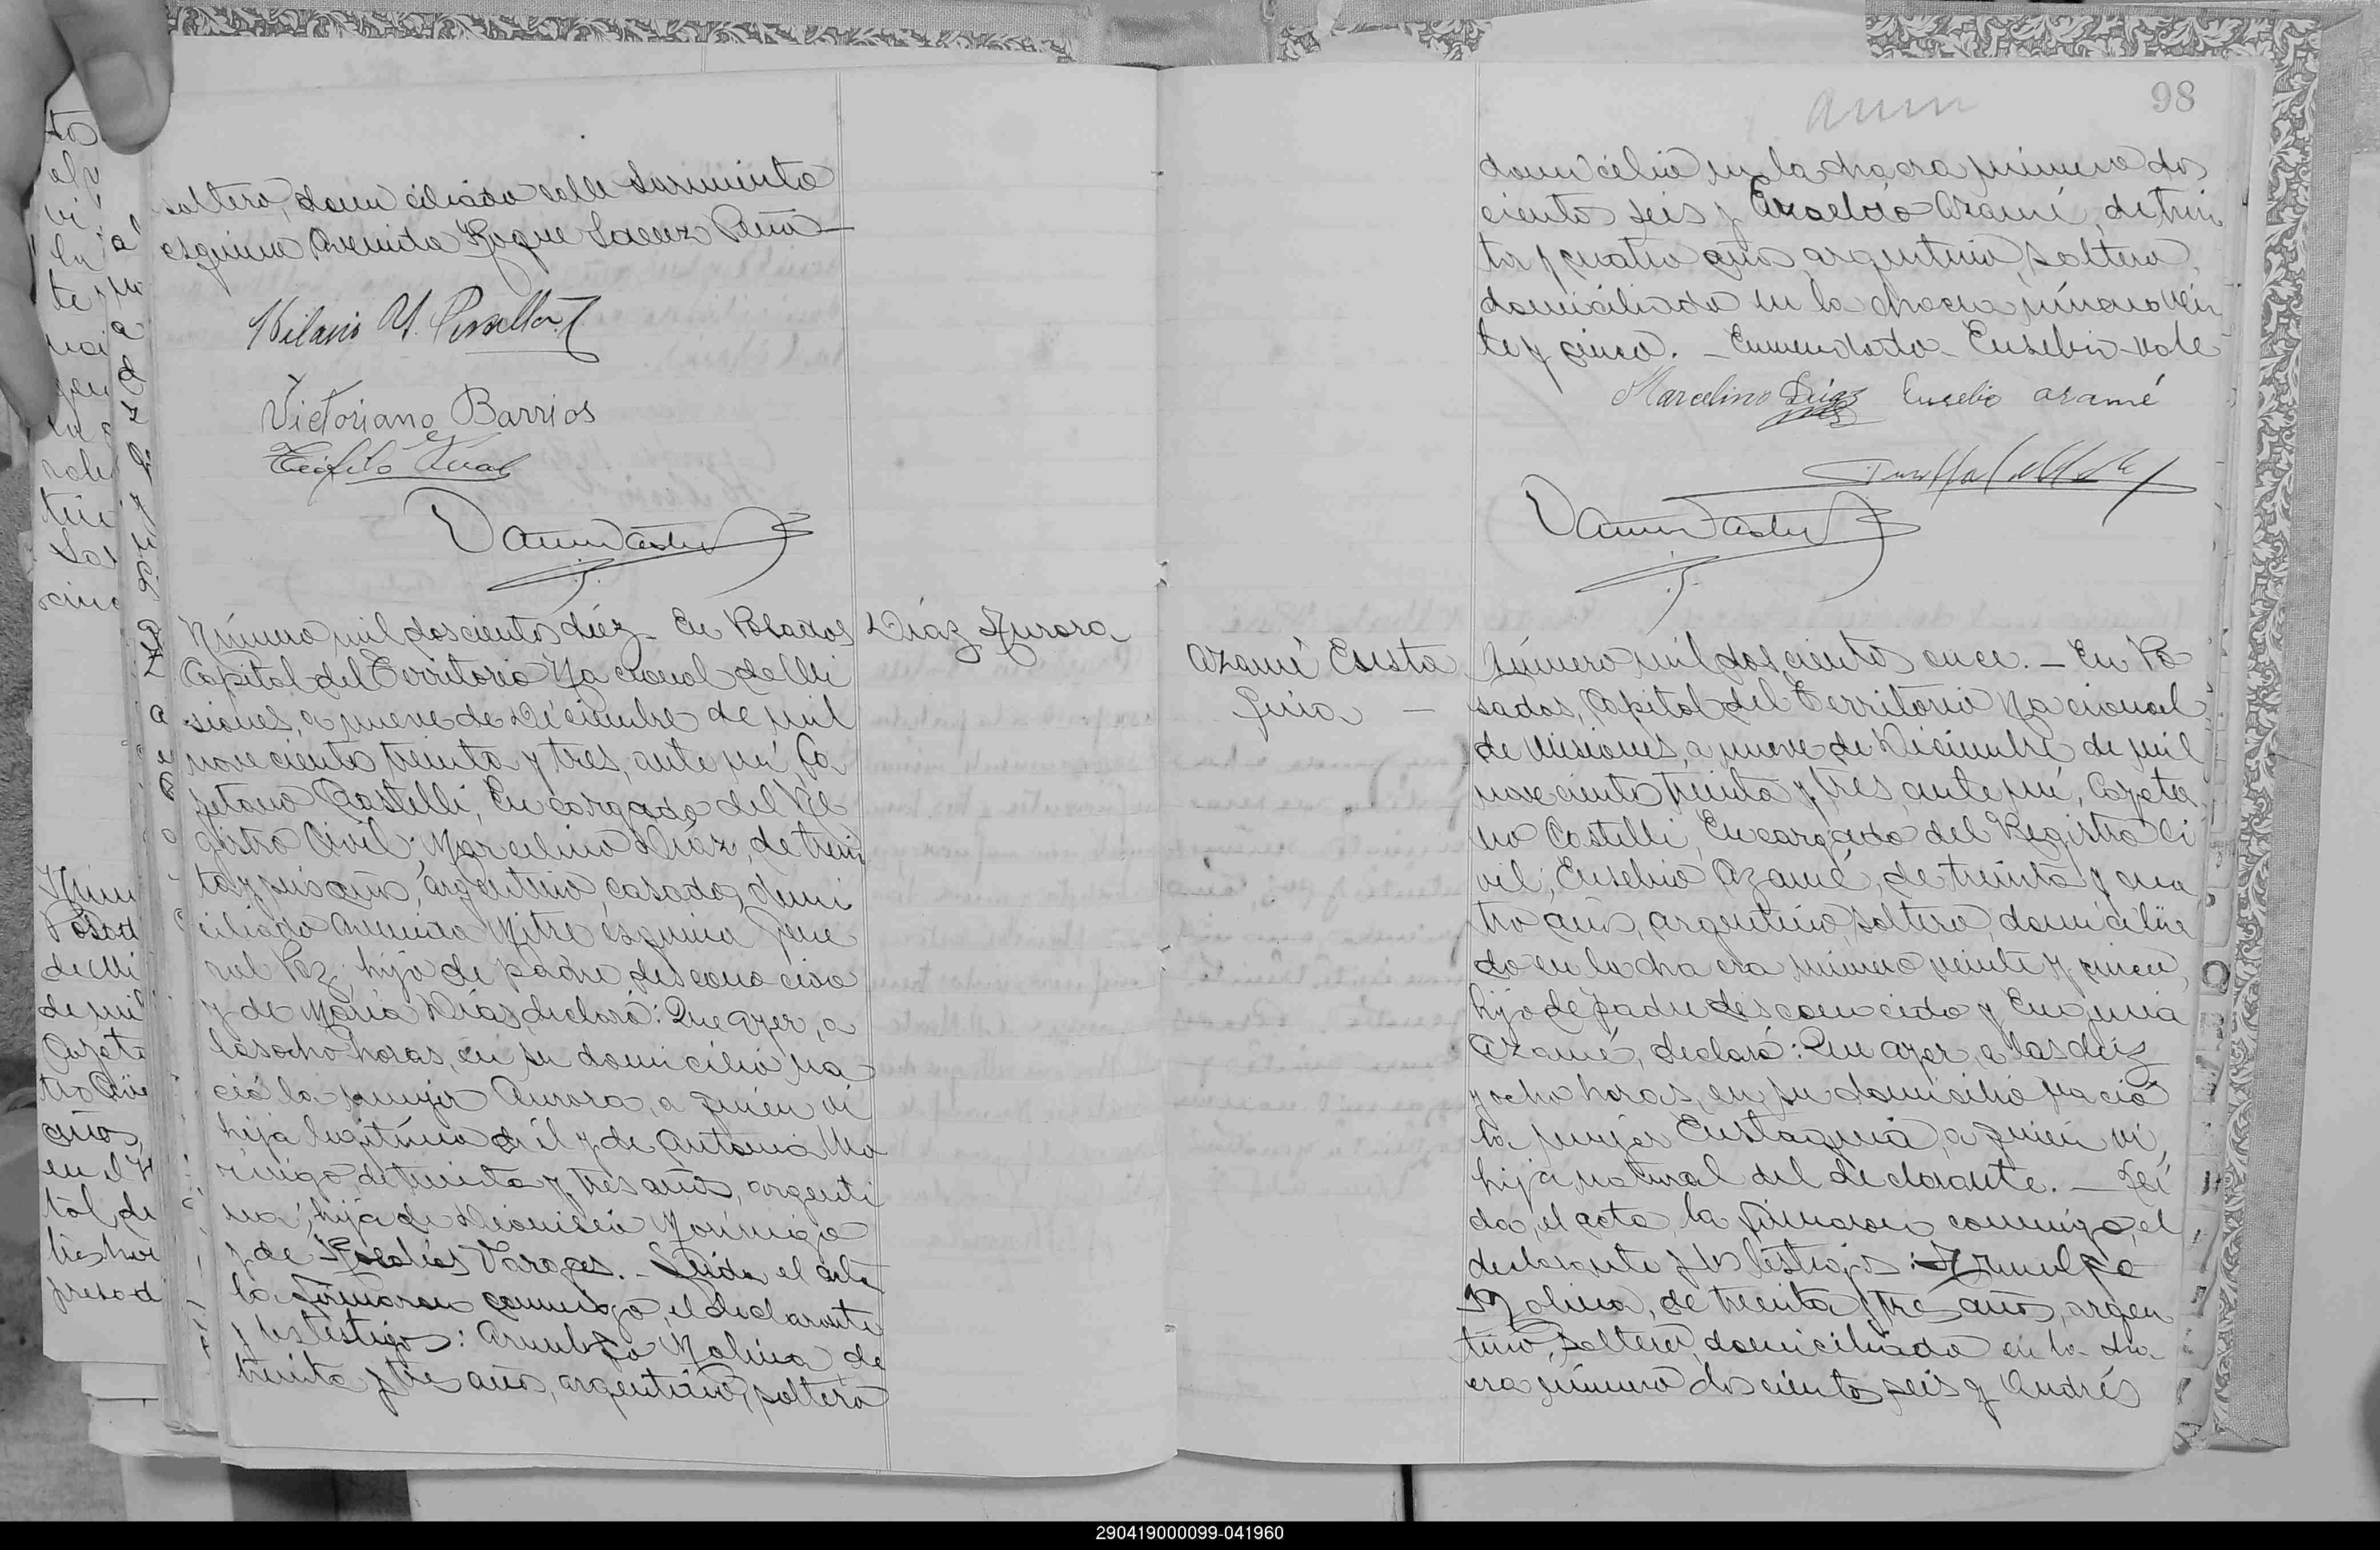 soltero, domiciliado calle Sarmiento
esquina Avenida Roque Saenz Peña
Hilario
Victoriano Barrios
Teófilo
Número mil doscientos diez - En Posadas
Capital del Territorio Nacional de Mi
siones, a nueve de Diciembre de mil
novecientos treinta y tres, ante mí, Ca
yetano Castelli, Encargado del Re
gistro Civil; Marcelino Díaz, de trein
ta y seis años, argentino, casado, domi
ciliado Avenida Mitre esquina Gene
ral Paz, hijo de padre desconocido
y de María Días, declaró: Que ayer, a
las ocho horas, en su domicilio na
ció la mujer Aurora, a quien vi
hija legítima de él y de Antonia Mo
ringo, de treinta y tres años, argenti
na, hija de Dionisio Moringo
y de Vargas. - Leída el acta
la firmaron conmigo, el declarante
y los testigos: Arnulfo Molina de
treinta y tres años, argentino, soltero
Díaz Aurora
98
domicilio en la chacra número dos
cientos seis y Eusebio Azamé, de trein
ta y cuatro años argentino, soltero,
domiciliado en la chacra número vein
te y cinco. - Enmendado - Eusebio - vale
Marcelino Díaz Eusebio azamé
Azamé Eusta
quia -
Número mil doscientos once. - En Po
sadas, Capital del Territorio Nacional
de Misiones, a nueve de Diciembre de mil
novecientos treinta y tres ante mí, Cayeta
no Castelli, Encargado del Registro Ci
vil; Eusebio Azamé, de treinta y cua
tro años, argentino, soltero, domicilia
do en la chacra número veinte y cinco,
hijo de padre desconocido y Eugenia
Azamé, declaró: Que ayer, a las diez
y ocho horas, en su domicilio nació
la mujer Eustaquia, a quien vi,
hija natural del declarante. - Leí
da, el acta, la firmaron conmigo, el
declarante y los testigos: Arnulfo
Molina, de treinta y tres años, argen
tino, soltero, domiciliado en la cha
cra número doscientos seis y Andrés
290419000099-041960